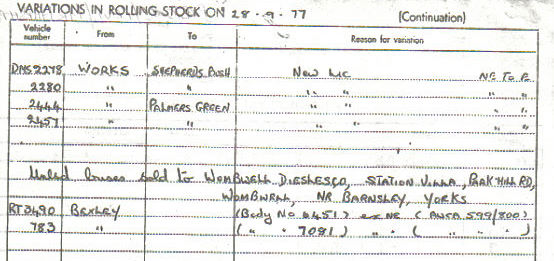 VARIATIONS IN ROLLING STOCK ON 28.9.77 (Continuation)
Vehicle number From To Reason for variation
DMS2278 WORKS SHEPHERDS BUSH New Lic NE To PE
2280 " " " " " "
2444 " PALMERS GREEN " " " "
2457 " " " " " "
Unlic'd buses sold to WOMBWELL DIESELS CO, STATION VILLA, PARK HILL RD,
WOMBWELL, NR BARNSLEY, YORKS
RT3490 BEXLEY (Body No 6451) ex NE ( 599/800)
783 " ( " " 7081) " " ( " " " )